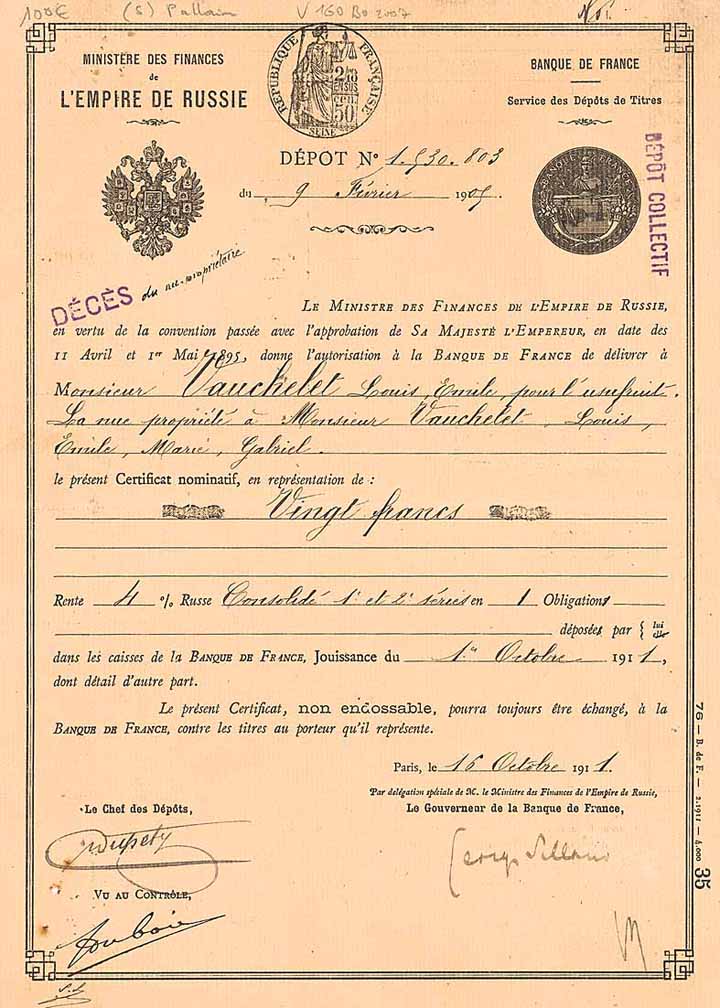 100€ (S) Pallain V 160 Bo 2007
MINISTÈRE DES FINANCES
de
L'EMPIRE DE RUSSIE
RÉPUBLIQUE FRANÇAISE
SEINE
BANQUE DE FRANCE
Service des Dépôts de Titres
DÉPOT N° 1.530.803
du 9 Février 1905.
BANQUE DE FRANCE
DÉPÔT COLLECTIF
DÉCÈS du nu-propriétaire
LE MINISTRE DES FINANCES DE L'EMPIRE DE RUSSIE,
en vertu de la convention passée avec l'approbation de SA MAJESTÉ L'EMPEREUR, en date des
11 Avril et 1er Mai 1895, donne l'autorisation à la BANQUE DE FRANCE de délivrer à
Monsieur Vauchelet Louis, Emile, pour l'usufruit.
La nue propriété à Monsieur Vauchelet, Louis,
Emile, Marie, Gabriel.
le présent Certificat nominatif, en représentation de :
Vingt francs
Rente 4 % Russe Consolidé 1e et 2e séries en 1 Obligations
déposées par { lui elle
dans les caisses de la BANQUE DE FRANCE, Jouissance du 1er Octobre 1911,
dont détail d'autre part.
Le présent Certificat, non endossable, pourra toujours être échangé, à la
BANQUE DE FRANCE, contre les titres au porteur qu'il représente.
Paris, le 16 Octobre 1911.
Par délégation spéciale de M. le Ministre des Finances de l'Empire de Russie,
Le Gouverneur de la Banque de France,
Le Chef des Dépôts,
VU AU CONTRÔLE,
76 — B. de F. — 2.1911 — 4.000 35